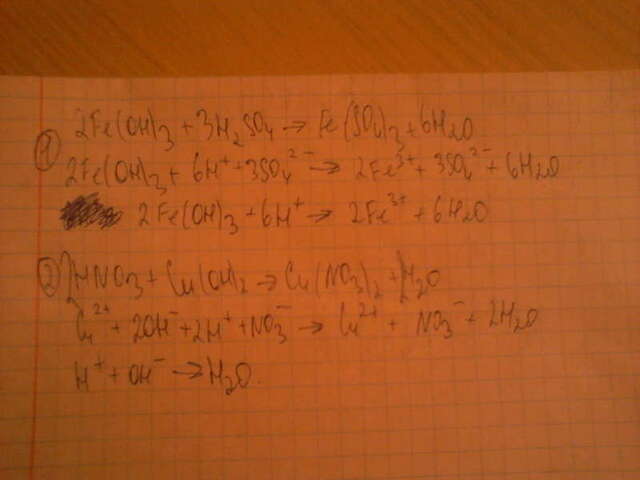 ① 2Fe(OH)₃ + 3H₂SO₄ → Fe(SO₄)₃ + 6H₂O
2Fe(OH)₃ + 6H⁺ + 3SO₄²⁻ → 2Fe³⁺ + 3SO₄²⁻ + 6H₂O
2Fe(OH)₃ + 6H⁺ → 2Fe³⁺ + 6H₂O
② 2HNO₃ + Cu(OH)₂ → Cu(NO₃)₂ + H₂O
Cu²⁺ + 2OH⁻ + 2H⁺ + NO₃⁻ → Cu²⁺ + NO₃⁻ + 2H₂O
H⁺ + OH⁻ → H₂O.